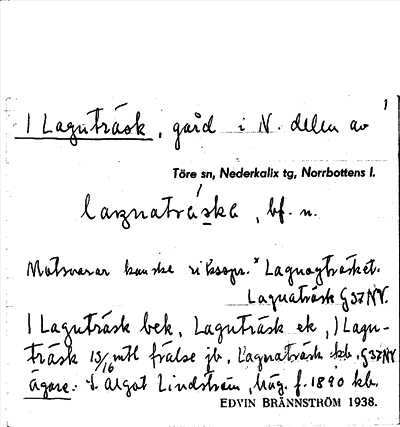 1
1 Laguträsk, gård i N. delen av
Töre sn, Nederkalix tg, Norrbottens l.
lagnatráska, bf. n.
Motsvarar kanske riksspr. * Lagnogträsket.
Lagnaträsk G37NV.
1 Laguträsk bek, Laguträsk ek, 1 Lagu-
träsk 13/16 mtl frälse jb, Lagnaträsk kb. G37NV
ägare: Algot Lindström, häg. f. 1890 kb.
EDVIN BRÄNNSTRÖM 1938.